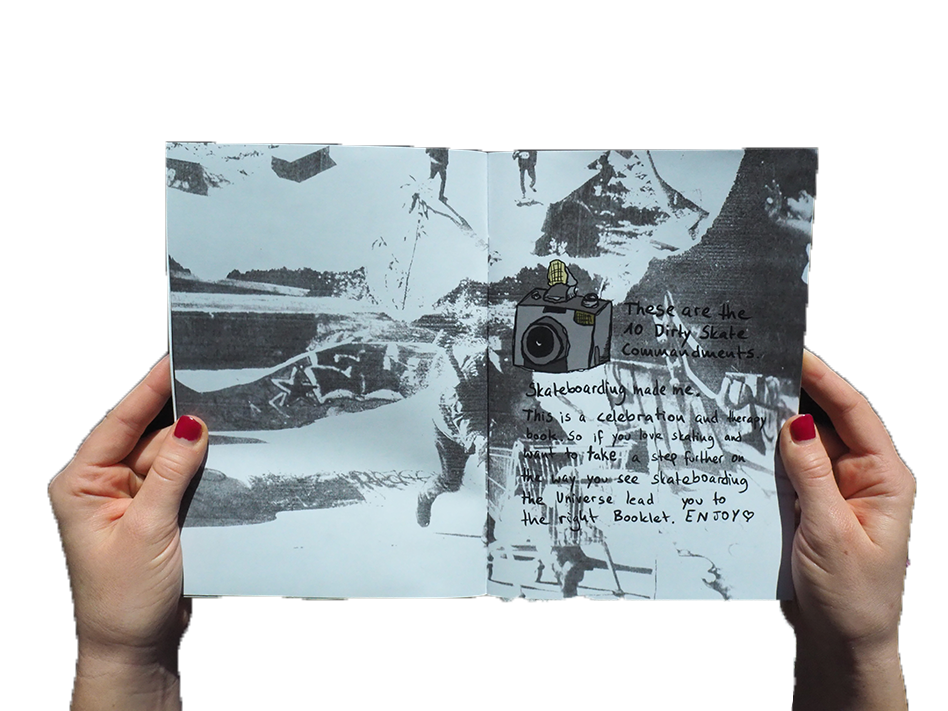 These are the
10 Dirty Skate
Commandments.
Skateboarding made me.
This is a celebration and therapy
book. So if you love skating and
want to take a step further on
the way you see skateboarding
the Universe lead you to
the right Booklet. ENJOY♡